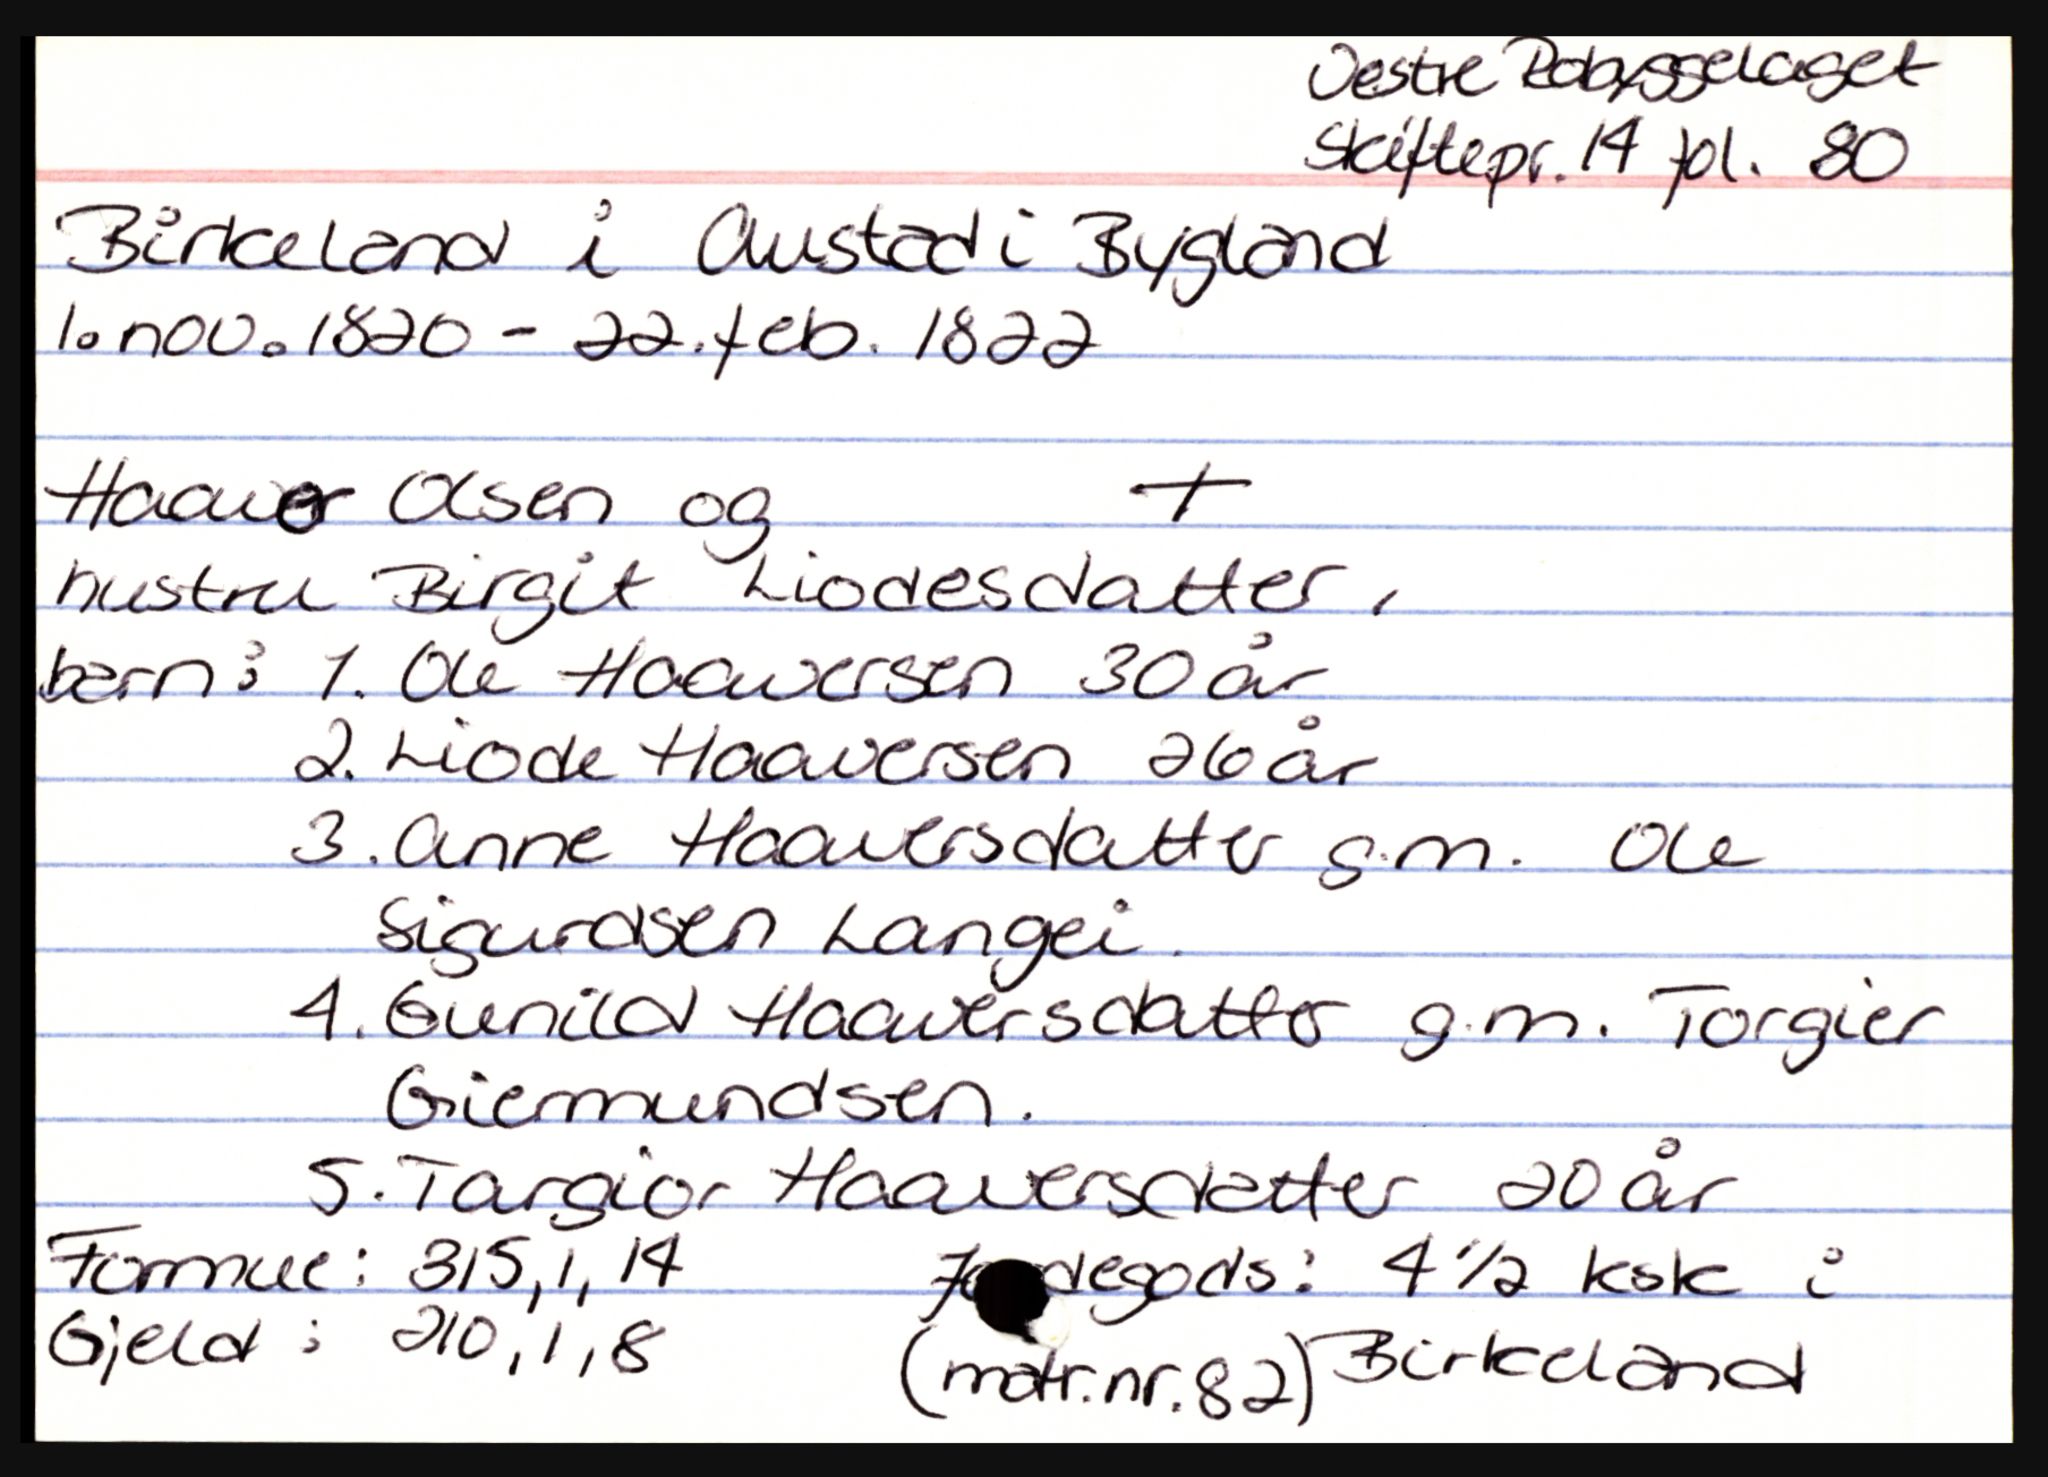 Vestre Robyggelaget
Skiftepr. 14 fol. 80
Birkeland i Austad i Bygland
1. nov. 1820 - 22. feb. 1822
Haaver Olsen og +
hustru Birgit Liodesdatter,
barn: 1. Ole Haaversen 30 år
2. Liode Haaversen 26 år
3. Anne Haaversdatter g.m. Ole
Sigurdsen Langei.
4. Gunild Haaversdatter g.m. Torgier
Giermundsen.
5. Targior Haaversdatter 20 år
Formue: 315,1,14 Jordegods: 4 1/2 ksk i
Gjeld: 210,1,8 (matr.nr. 82) Birkeland